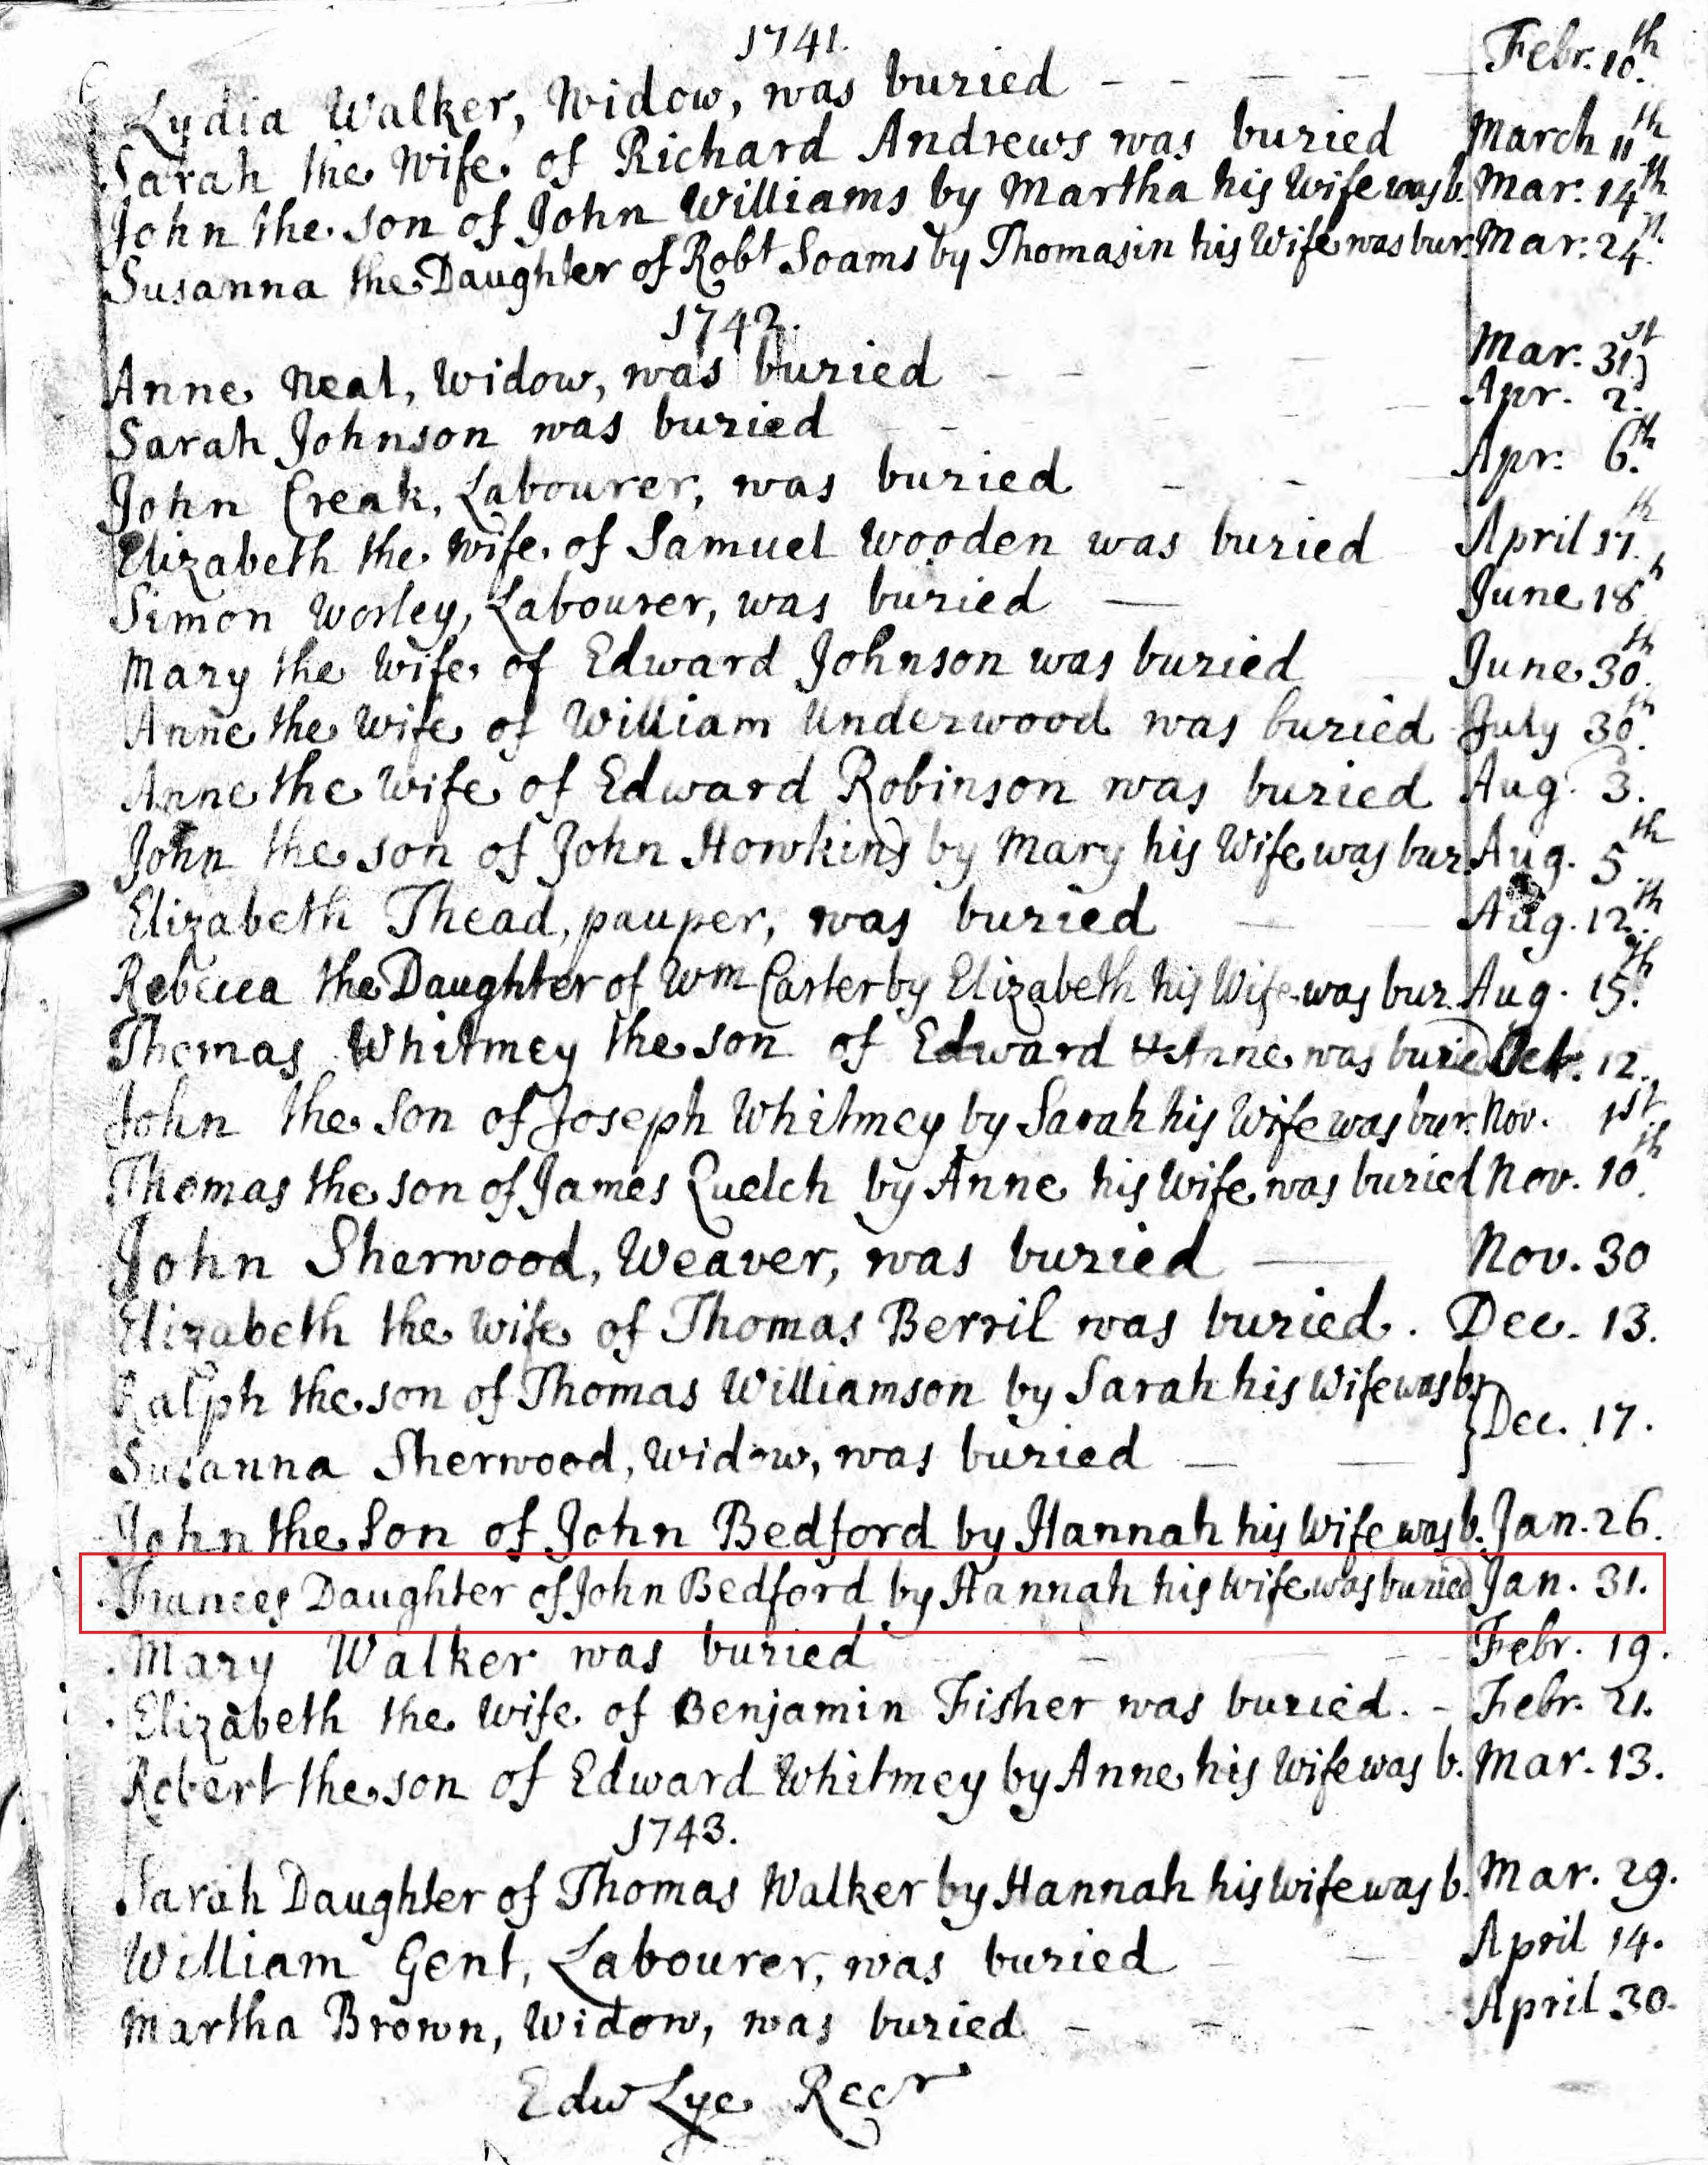 1741.
Lydia Walker, Widow, was buried Febr. 10th
Sarah the Wife of Richard Andrews was buried March 11th
John the son of John Williams by Martha his Wife was b. Mar. 14th
Susanna the Daughter of Robt Soams by Thomasin his Wife was bur. Mar. 24th
1742.
Anne Neal, Widow, was buried Mar. 31st
Sarah Johnson was buried Apr. 2d
John Creak, Labourer, was buried Apr. 6th
Elizabeth the Wife of Samuel Wooden was buried April 17th
Simon Worley, Labourer, was buried June 18th
Mary the Wife of Edward Johnson was buried June 30th
Anne the Wife of William Underwood was buried July 30th
Anne the Wife of Edward Robinson was buried Aug. 3.
John the son of John Howkins by Mary his Wife was bur. Aug. 5th
Elizabeth Thead, pauper, was buried Aug. 12th
Rebecca the Daughter of Wm Carter by Elizabeth his Wife was bur. Aug. 15th
Thomas Whitmey the son of Edward & Anne was buried Oct. 12.
John the Son of Joseph Whitmey by Sarah his Wife was bur. Nov. 1st
Thomas the son of James Quelch by Anne his Wife was buried Nov. 10th
John Sherwood, Weaver, was buried Nov. 30
Elizabeth the Wife of Thomas Berril was buried. Dec. 13.
Ralph the son of Thomas Williamson by Sarah his Wife was b.
Dec. 17.
Susanna Sherwood, Widow, was buried
John the Son of John Bedford by Hannah his Wife was b. Jan. 26.
Frances Daughter of John Bedford by Hannah his Wife was buried Jan. 31.
Mary Walker was buried Febr. 19.
Elizabeth the Wife of Benjamin Fisher was buried. Febr. 21.
Robert the son of Edward Whitmey by Anne his Wife was b. Mar. 13.
1743.
Sarah Daughter of Thomas Walker by Hannah his Wife was b. Mar. 29.
William Gent, Labourer, was buried April 14.
Martha Brown, Widow, was buried April 30.
Edw Lye Recr